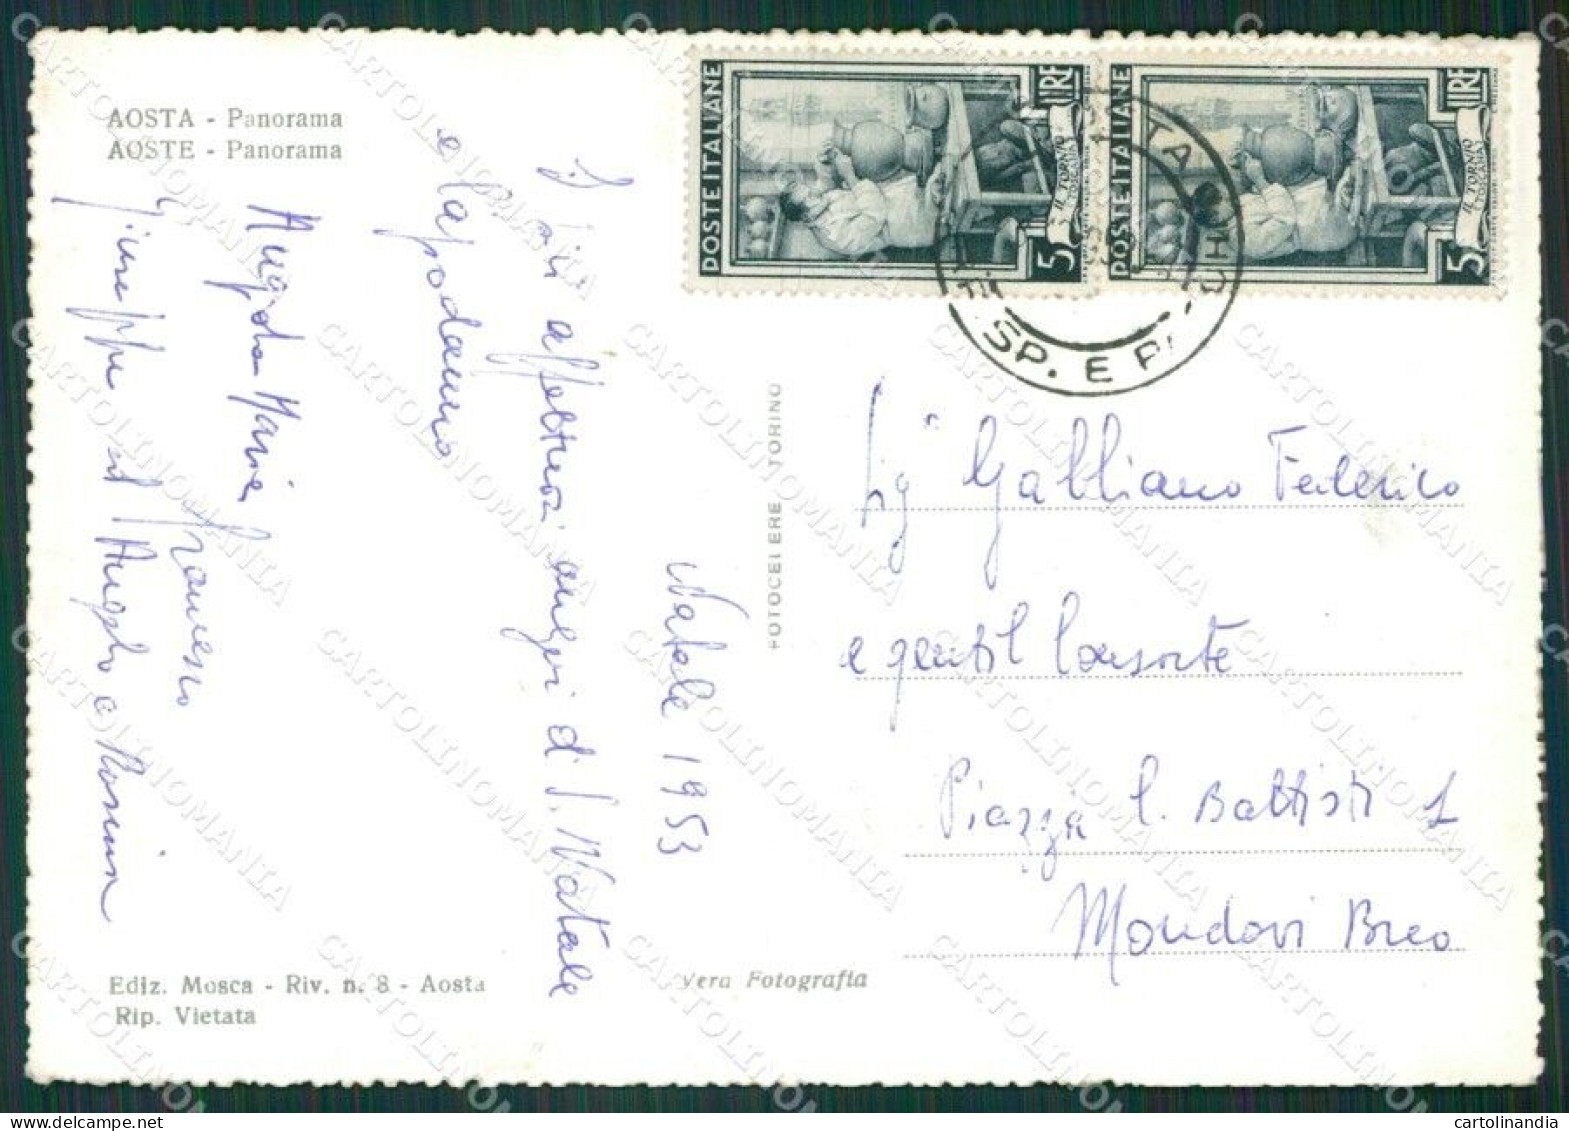 AOSTA - Panorama
AOSTE - Panorama
Natale 1953
I più affettuosi auguri di S. Natale
e Capodanno
Maria Francesco
Giuseppe Angelo e Rosina
Ediz. Mosca - Riv. n. 8 - Aosta
Rip. Vietata
Vera Fotografia
FOTOCELERE TORINO
POSTE ITALIANE
5 LIRE
IL TORNIO
POSTE ITALIANE
5 LIRE
IL TORNIO
Sig. Gabbiano Federico
e gentil Consorte
Piazza C. Battisti 1
Mondovì Breo
CARTOLINOMANIA
cartolinandia